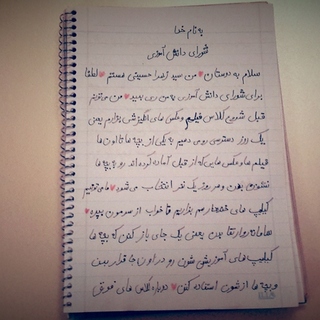 به نام خدا
شورای دانش آموزی
سلام به دوستان ♥ من سید زهرا حسینی هستم ♥ لطفا
برای شورای دانش آموزی به من رای بدید ♥ من می‌توانم
قبل شروع کلاس فیلم و عکس های انگیزشی بزارم یعنی
یک روز دسترسی رو می دهیم به یکی از بچه ها تا اون ها
فیلم ها و عکس هایی که از قبل آماده کرده اند رو به بچه ها
نشون بدن و هر روز یک نفر انتخاب می شود ♥ ما می توانیم
کلیپ های خنده دار هم بزاریم تا خواب از سرمون بپره ♥
هماهنگ بدن یعنی یک جای باز کنن که بچه ها
کلیپ های آموزشی شون رو در اون جا قرار بدن
و بچه ها ازشون استفاده کنن ♥ درباره کلاس های